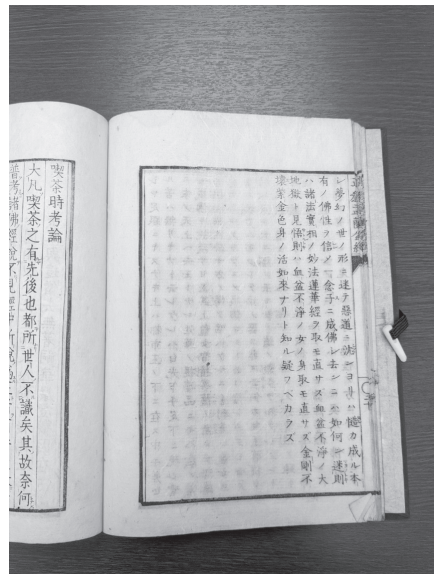 シ夢幻ノ世ノ形ニ迷テ惡道ニ沈ンヨリハ慥カ成ル本
有ノ佛性ヲ信ノ一念子ニ成佛シ去ンニハ如何ン迷則
ハ諸法實相ノ妙法蓮華經ヲ取モ直サズ血盆不淨ノ大
地獄ト見悟則ハ血盆不淨ノ女ノ身取モ直サズ金剛不
壞紫金色身ノ活如來ナリト知ル疑フベカラズ
喫茶時考論
大凡喫茶之有先後也都所世人不識矣其故奈何
普考諸佛經說不見經中所說